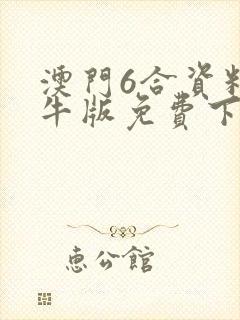 澳門6合資料
牛版免費下
惠公館